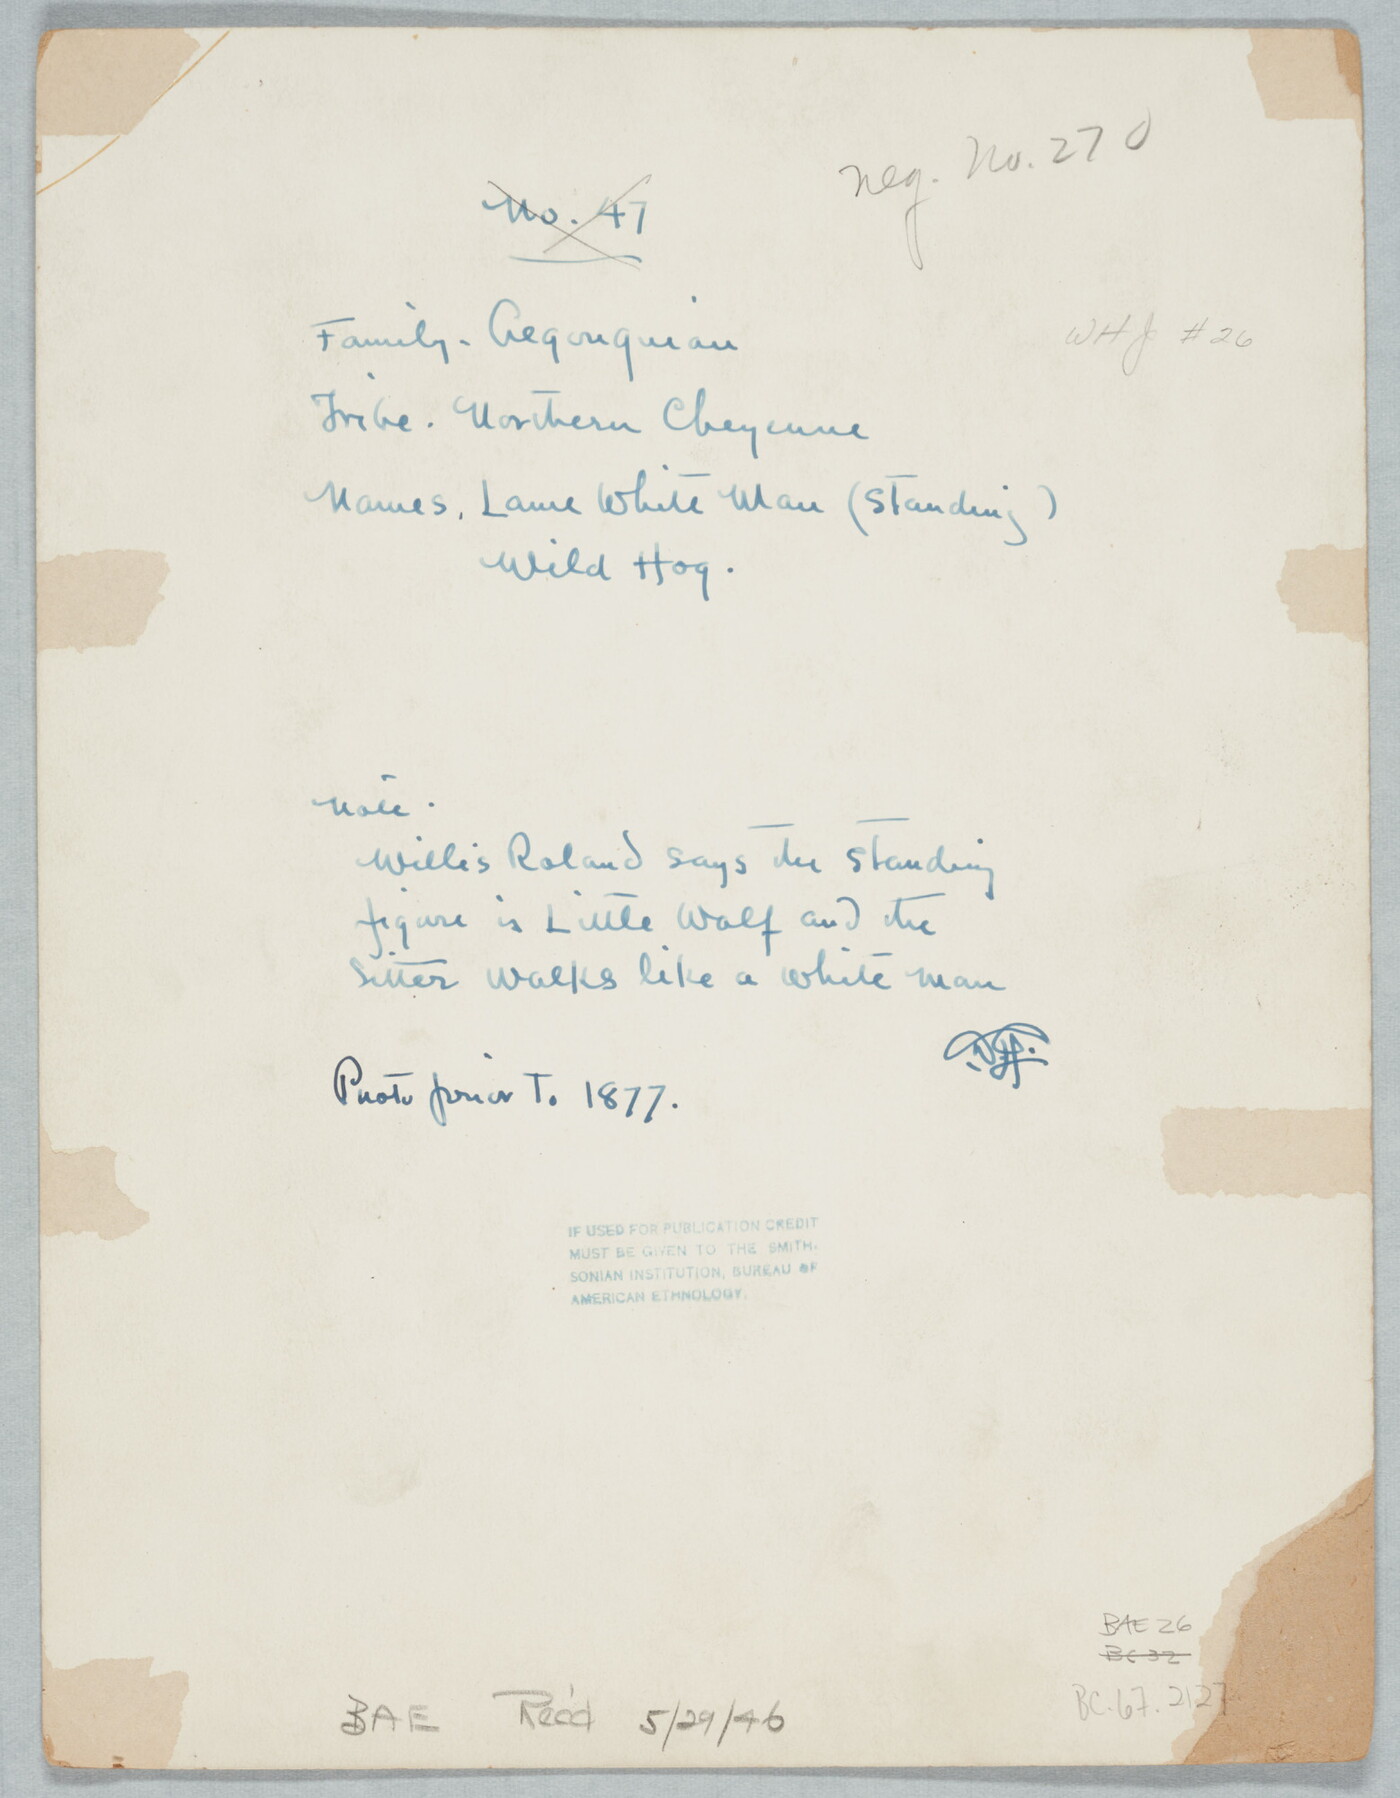 neg. No. 270
No. 47
Family - Algonquian
WHJ #26
Tribe. Northern Cheyenne
Names, Lame White Man (standing)
Wild Hog.
Note.
Willis Roland says the standing
figure is Little Wolf and the
sitter walks like a white man
Photo prior to 1877.
IF USED FOR PUBLICATION CREDIT
MUST BE GIVEN TO THE SMITH-
SONIAN INSTITUTION, BUREAU OF
AMERICAN ETHNOLOGY.
BAE 26
BC 32
BC.67.2127
BAE Rec'd 5/29/46